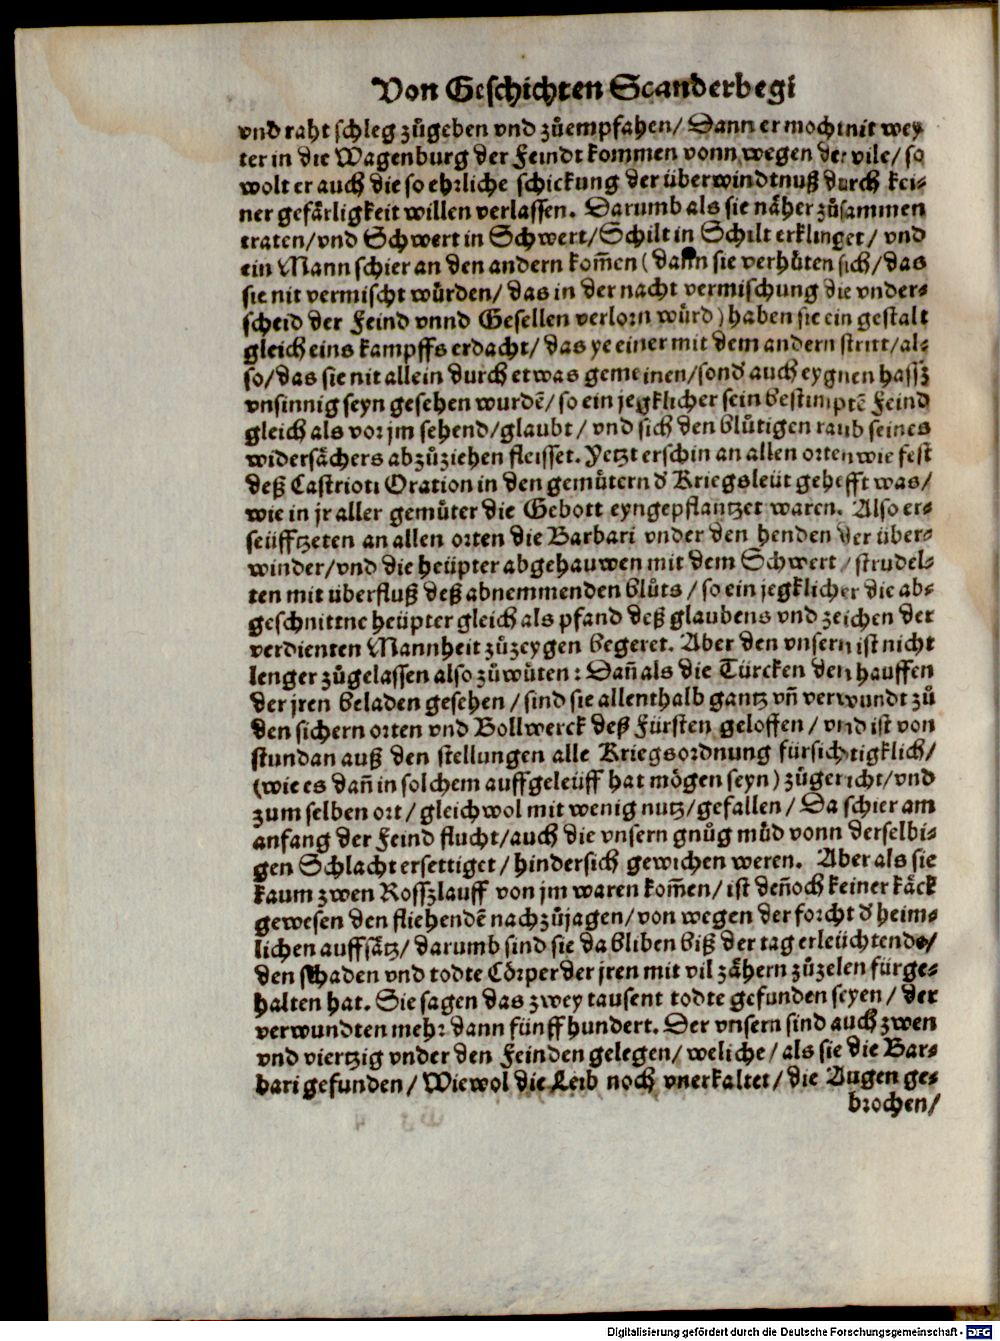 Von Geschichten Scanderbegi
vnd raht schleg zůgeben vnd zůempfahen/ Dann er mocht nit wey
ter in die Wagenburg der Feindt kommen vonn wegen der vile/ so
wolt er auch die so ehrliche schickung der überwindtnuß durch kei-
ner gefärligkeit willen verlassen. Darumb als sie näher zůsammen
traten/ vnd Schwert in Schwert/ Schilt in Schilt erklinget/ vnd
ein Mann schier an den andern kom̃en (dann sie verhüten sich/ das
sie nit vermischt würden/ das in der nacht vermischung die vnder-
scheid der Feind vnnd Gesellen verlorn würd) haben sie ein gestalt
gleich eins kampffs erdacht/ das ye einer mit dem andern stritt/ al-
so/ das sie nit allein durch etwas gemeinen/ sond̕ auch eygnen hassz
vnsinnig seyn gesehen wurdẽ/ so ein jegklicher sein bestimptẽ Feind
gleich als vor jm sehend/ glaubt/ vnd sich den blůtigen raub seines
widersächers abzůziehen fleisset. Yetzt erschin an allen orten wie fest
deß Castrioti Oration in den gemütern d̕ Kriegsleüt gehefft was/
wie in jr aller gemüter die Gebott eyngepflantzet waren. Also er-
seüfftzeten an allen orten die Barbari vnder den henden der über-
winder/ vnd die heüpter abgehauwen mit dem Schwert/ strudel-
ten mit überfluß deß abnemmenden blůts/ so ein jegklicher die ab-
geschnittne heüpter gleich als pfand deß glaubens vnd zeichen der
verdienten Mannheit zůzeygen begeret. Aber den vnsern ist nicht
lenger zůgelassen also zůwüten: Dañ als die Türcken den hauffen
der jren beladen gesehen/ sind sie allenthalb gantz vñ verwundt zů
den sichern orten vnd Bollwerck deß Fürsten geloffen/ vnd ist von
stundan auß den stellungen alle Kriegsordnung fürsichtigklich/
(wie es dañ in solchem auffgeleüff hat mögen seyn) zůgericht/ vnd
zum selben ort/ gleichwol mit wenig nutz/ gefallen/ Da schier am
anfang der Feind flucht/ auch die vnsern gnůg müd vonn derselbi-
gen Schlacht ersettiget/ hindersich gewichen weren. Aber als sie
kaum zwen Rossz lauff von jm waren kom̃en/ ist deñoch keiner käck
gewesen den fliehendẽ nachzůjagen/ von wegen der forcht d̕ heim-
lichen auffsätz/ darumb sind sie da bliben biß der tag erleüchtende/
den schaden vnd todte Cörper der jren mit vil zähern zůzelen fürge-
halten hat. Sie sagen das zwey tausent todte gefunden seyen/ der
verwundten mehr dann fünff hundert. Der vnsern sind auch zwen
vnd viertzig vnder den Feinden gelegen/ weliche/ als sie die Bar-
bari gefunden/ Wiewol die Leib noch vnerkaltet/ die Augen ge-
brochen/
Digitalisierung gefördert durch die Deutsche Forschungsgemeinschaft - DFG